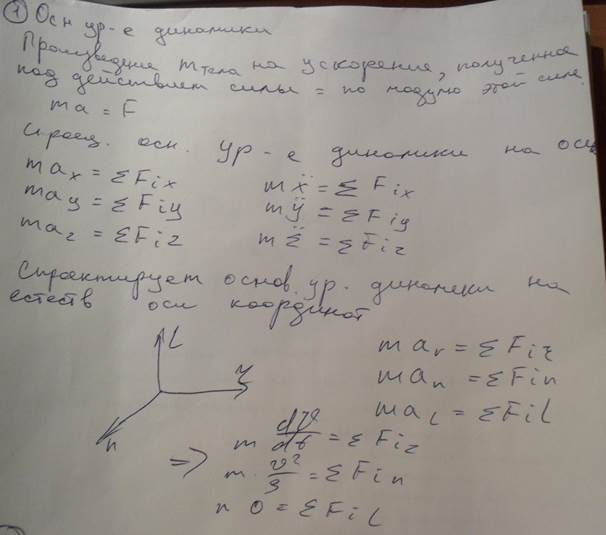 ① Осн ур-е динамики
Произведение m тела на ускорение, полученное
под действием силы = по модулю этой силе.
ma = F
Спроец. осн. ур-е динамики на оси
max = ΣFix
mẍ = ΣFix
may = ΣFiy
mÿ = ΣFiy
maz = ΣFiz
mz̈ = ΣFiz
Спроектирует основ. ур. динамики на
естеств оси координат
b
τ
n
maτ = ΣFiτ
man = ΣFin
mab = ΣFib
m dϑ/dt = ΣFiτ
=> m · ϑ²/ρ = ΣFin
m 0 = ΣFib